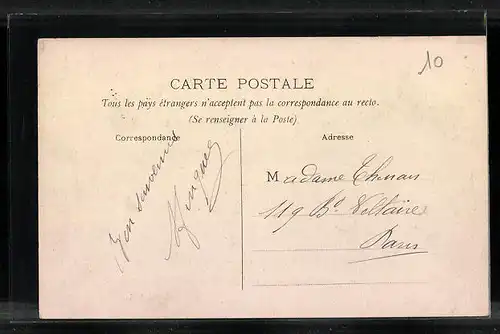 10
CARTE POSTALE
Tous les pays étrangers n'acceptent pas la correspondance au recto.
(Se renseigner à la Poste)
Correspondance
Bon souvenir
Adresse
Madame
119 Bd Voltaire
Paris